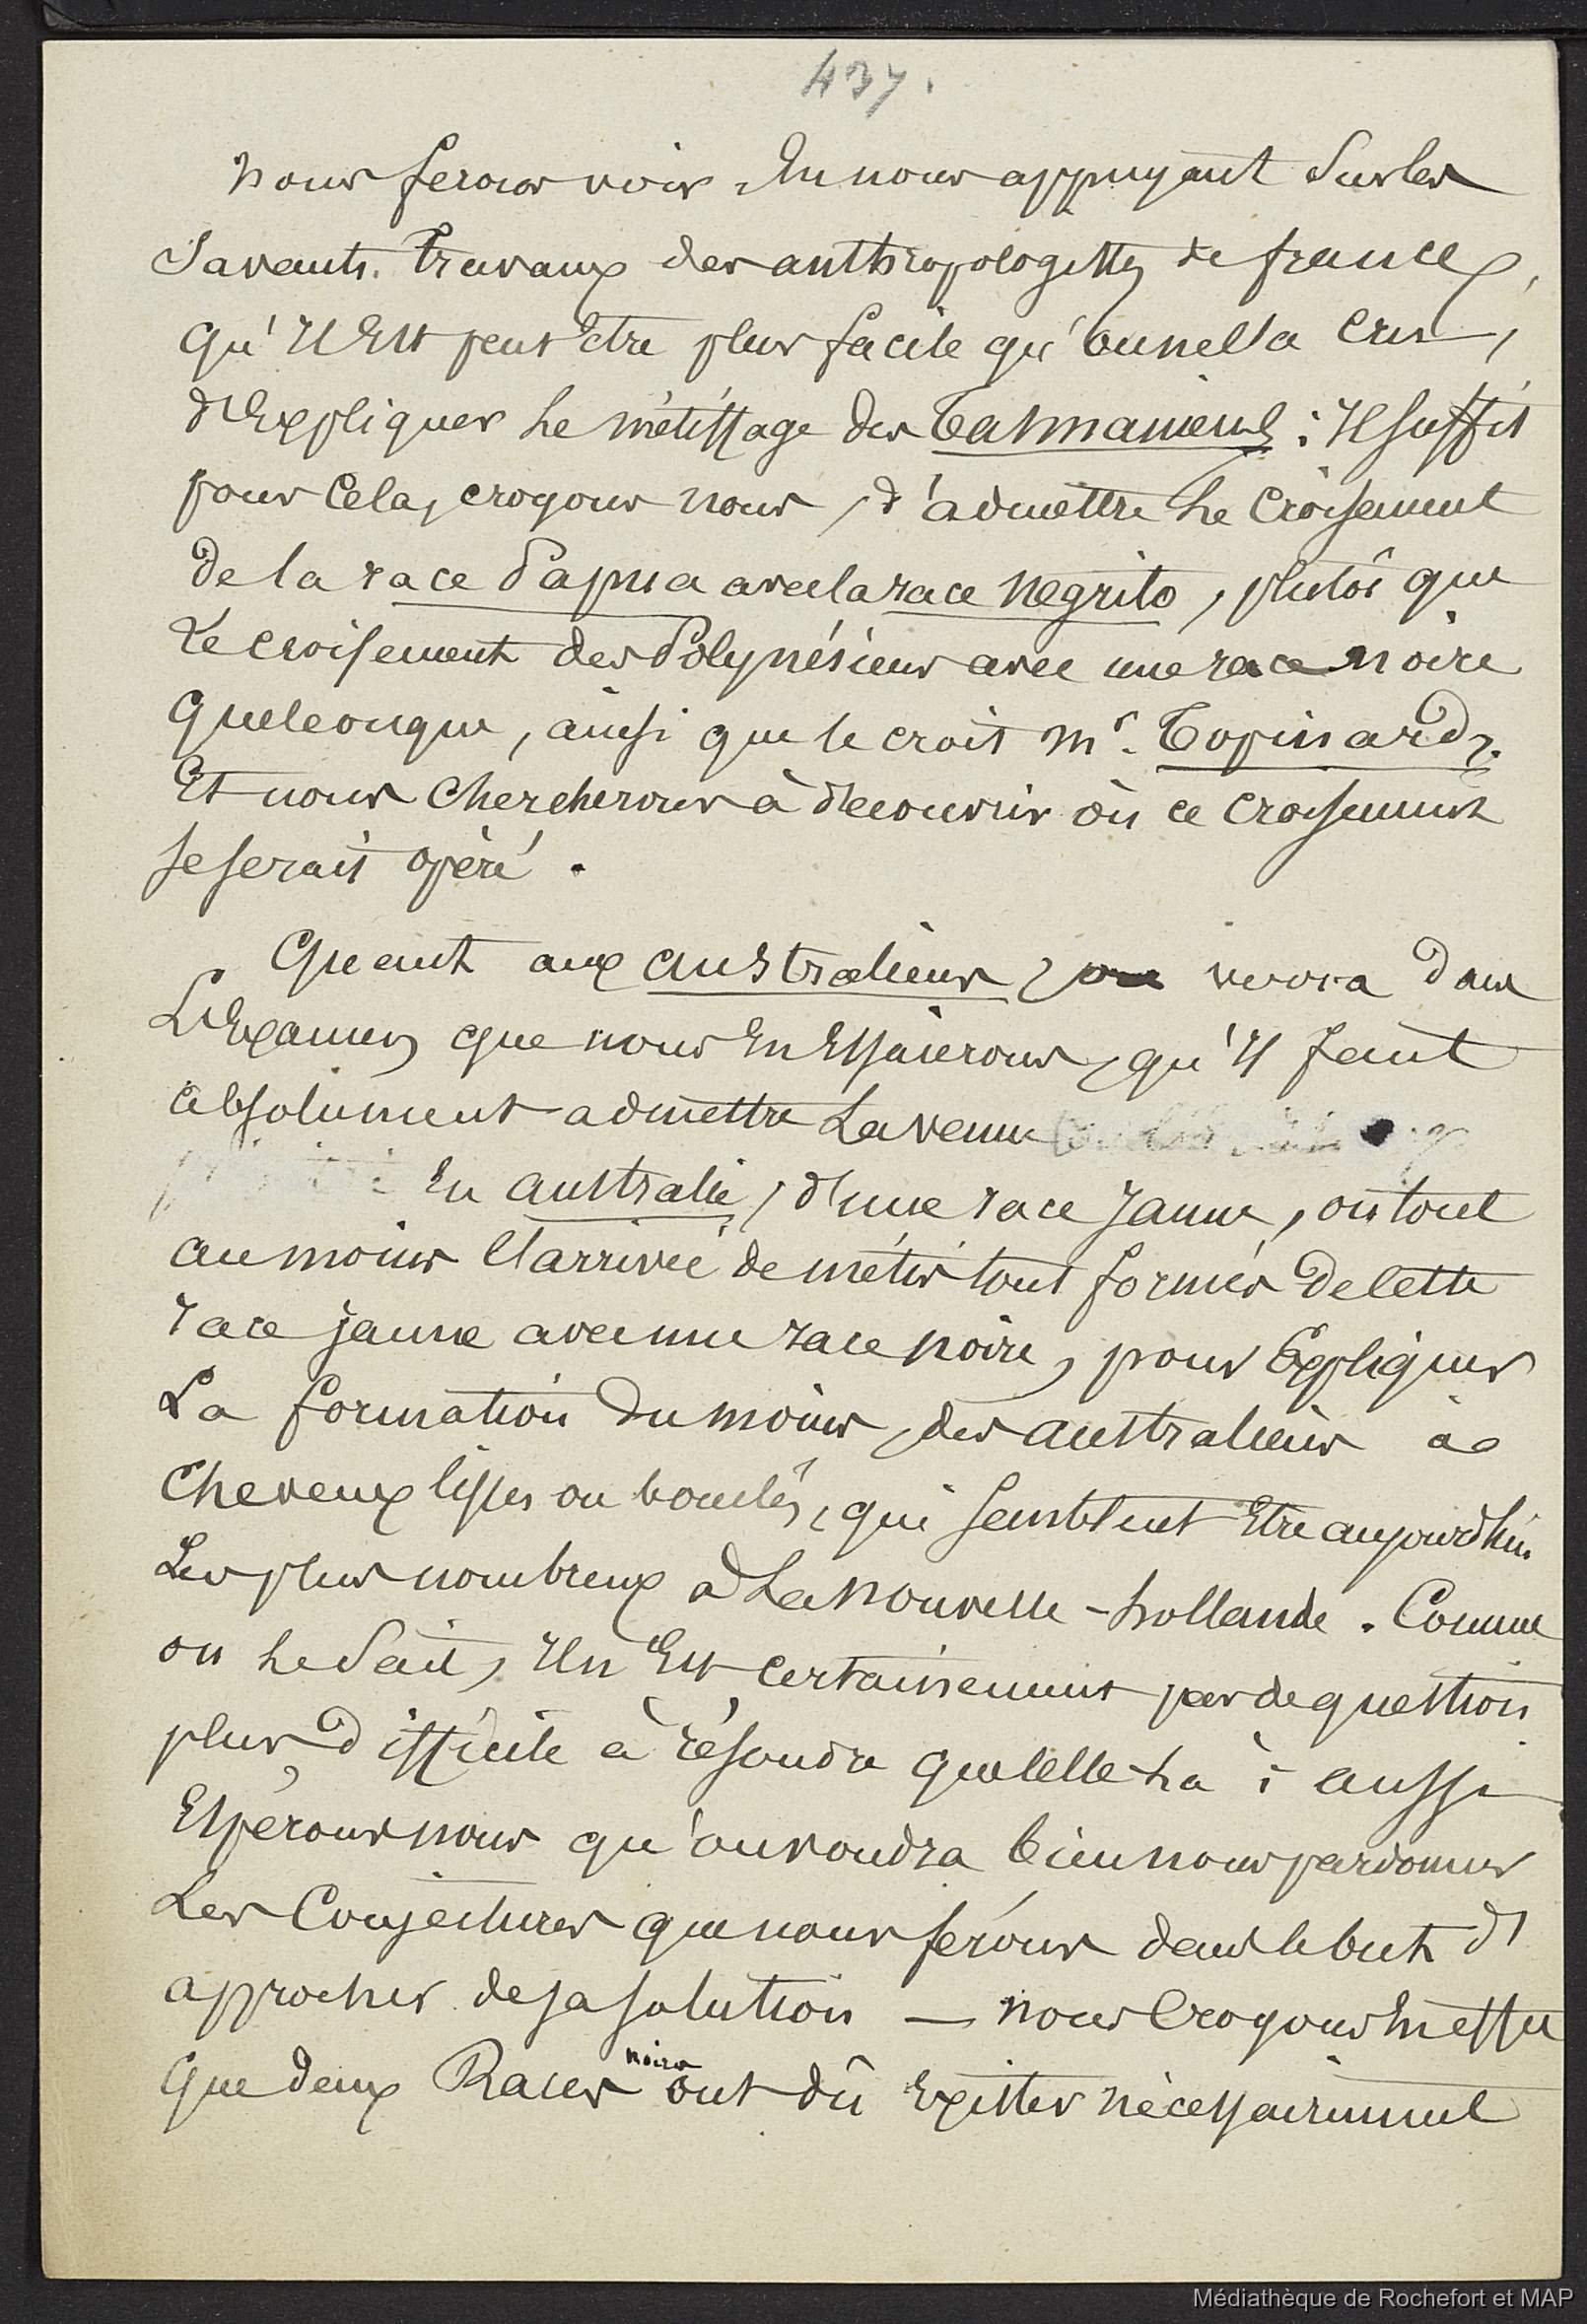 437.
nous ferons voir, En nous appuyant Sur les
Savants travaux des anthropologistes de france,
qu'Il Est peut Etre plus facile qu'on ne l'a Cru,
d'Expliquer Le métissage des Tasmaniens : Il suffit
pour Cela, croyons nous, d'admettre Le Croisement
de la race Papua avec la race Negrito, plutôt que
Le croisement des Polynésiens avec une race noire
quelconque, ainsi que le croit Mr. Topinard.
Et nous Chercherons à découvrir où ce croisement
se serait opéré.
Quant aux australiens, on verra dans
L'Examen que nous En Essaierons, qu'Il faut
absolument admettre La venue
En australie, d'une race Jaune, ou tout
au moins l'arrivée de métis tout formés de Cette
race jaune avec une race noire, pour Expliquer
La formation du moins, des australiens à
Cheveux lisses ou bouclés, qui semblent Etre aujourd'hui
Les plus nombreux à La Nouvelle-hollande. Comme
on Le Sait, Il n'Est certainement pas de question
plus difficile à résoudre que Celle-La ; aussi
Espérons nous qu'on voudra bien nous pardonner
Les Conjectures que nous ferons dans le but d'
approcher de sa solution — nous Croyons En effet
que deux Races noires ont dû Exister nécessairement
Médiathèque de Rochefort et MAP